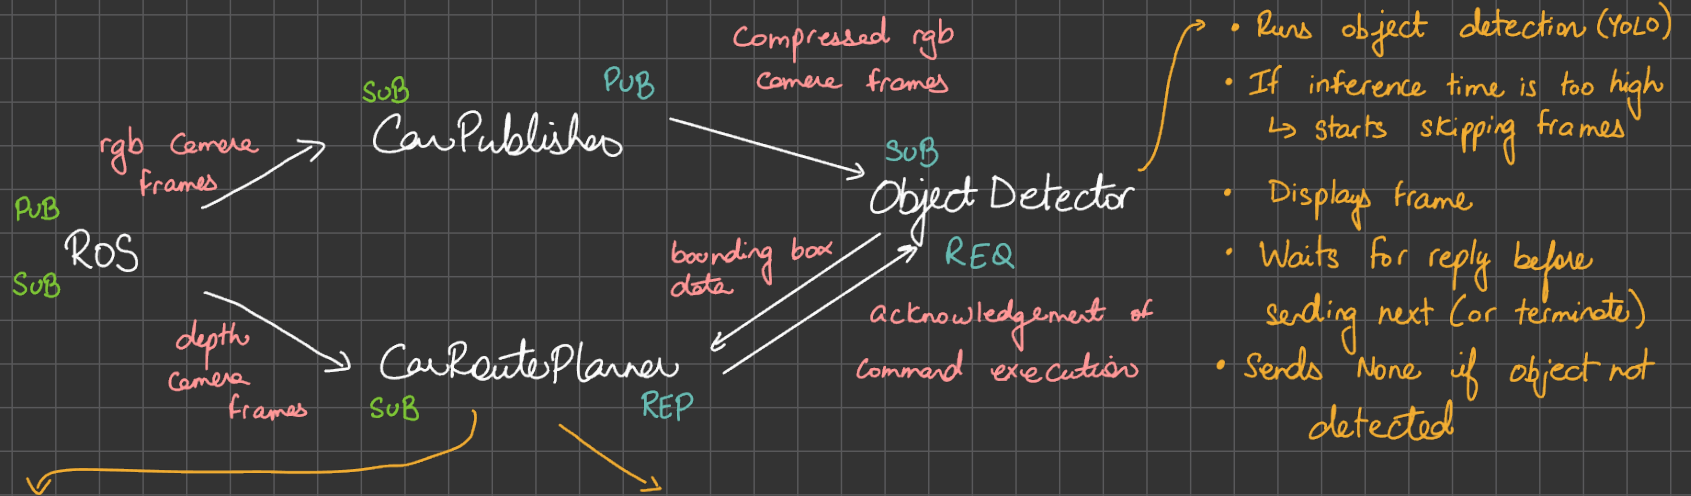 Compressed rgb
camera frames
PUB
SUB
CarPublisher
rgb Camera
frames
PUB
ROS
SUB
SUB
Object Detector
REQ
bounding box
data
acknowledgement of
command execution
depth
camera
frames
CarRoutePlanner
SUB
REP
• Runs object detection (YOLO)
• If inference time is too high
↳ starts skipping frames
• Displays frame
• Waits for reply before
sending next (or terminate)
• Sends None if object not
detected